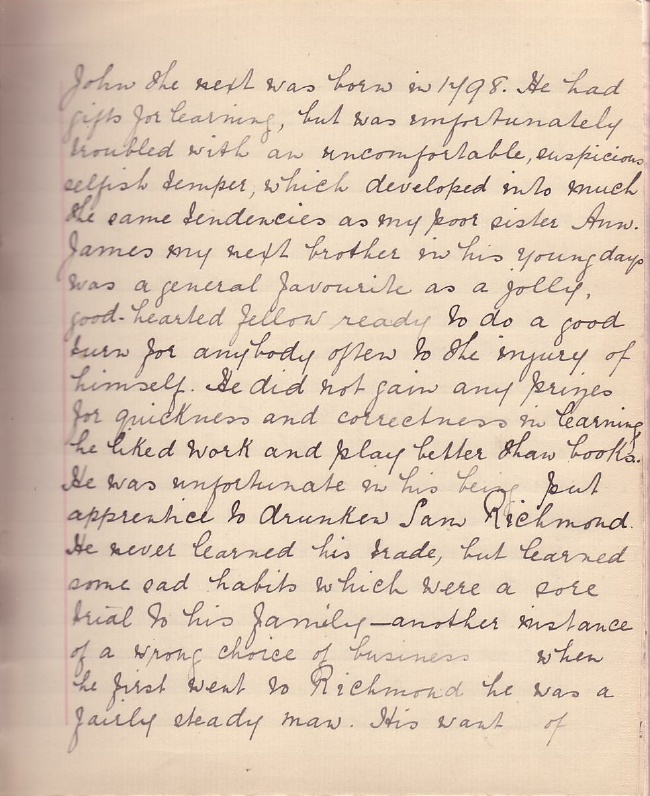 John the next was born in 1798. He had
gifts for learning, but was unfortunately
troubled with an uncomfortable, suspicious
selfish temper, which developed into much
the same tendencies as my poor sister Ann.
James my next brother in his young days
was a general favourite as a jolly,
good-hearted fellow ready to do a good
turn for anybody often to the injury of
himself. He did not gain any prizes
for quickness and correctness in learning
he liked work and play better than books.
He was unfortunate in his being put
apprentice to drunken Sam Richmond.
He never learned his trade, but learned
some sad habits which were a sore
trial to his family—another instance
of a wrong choice of business when
he first went to Richmond he was a
fairly steady man. His want of